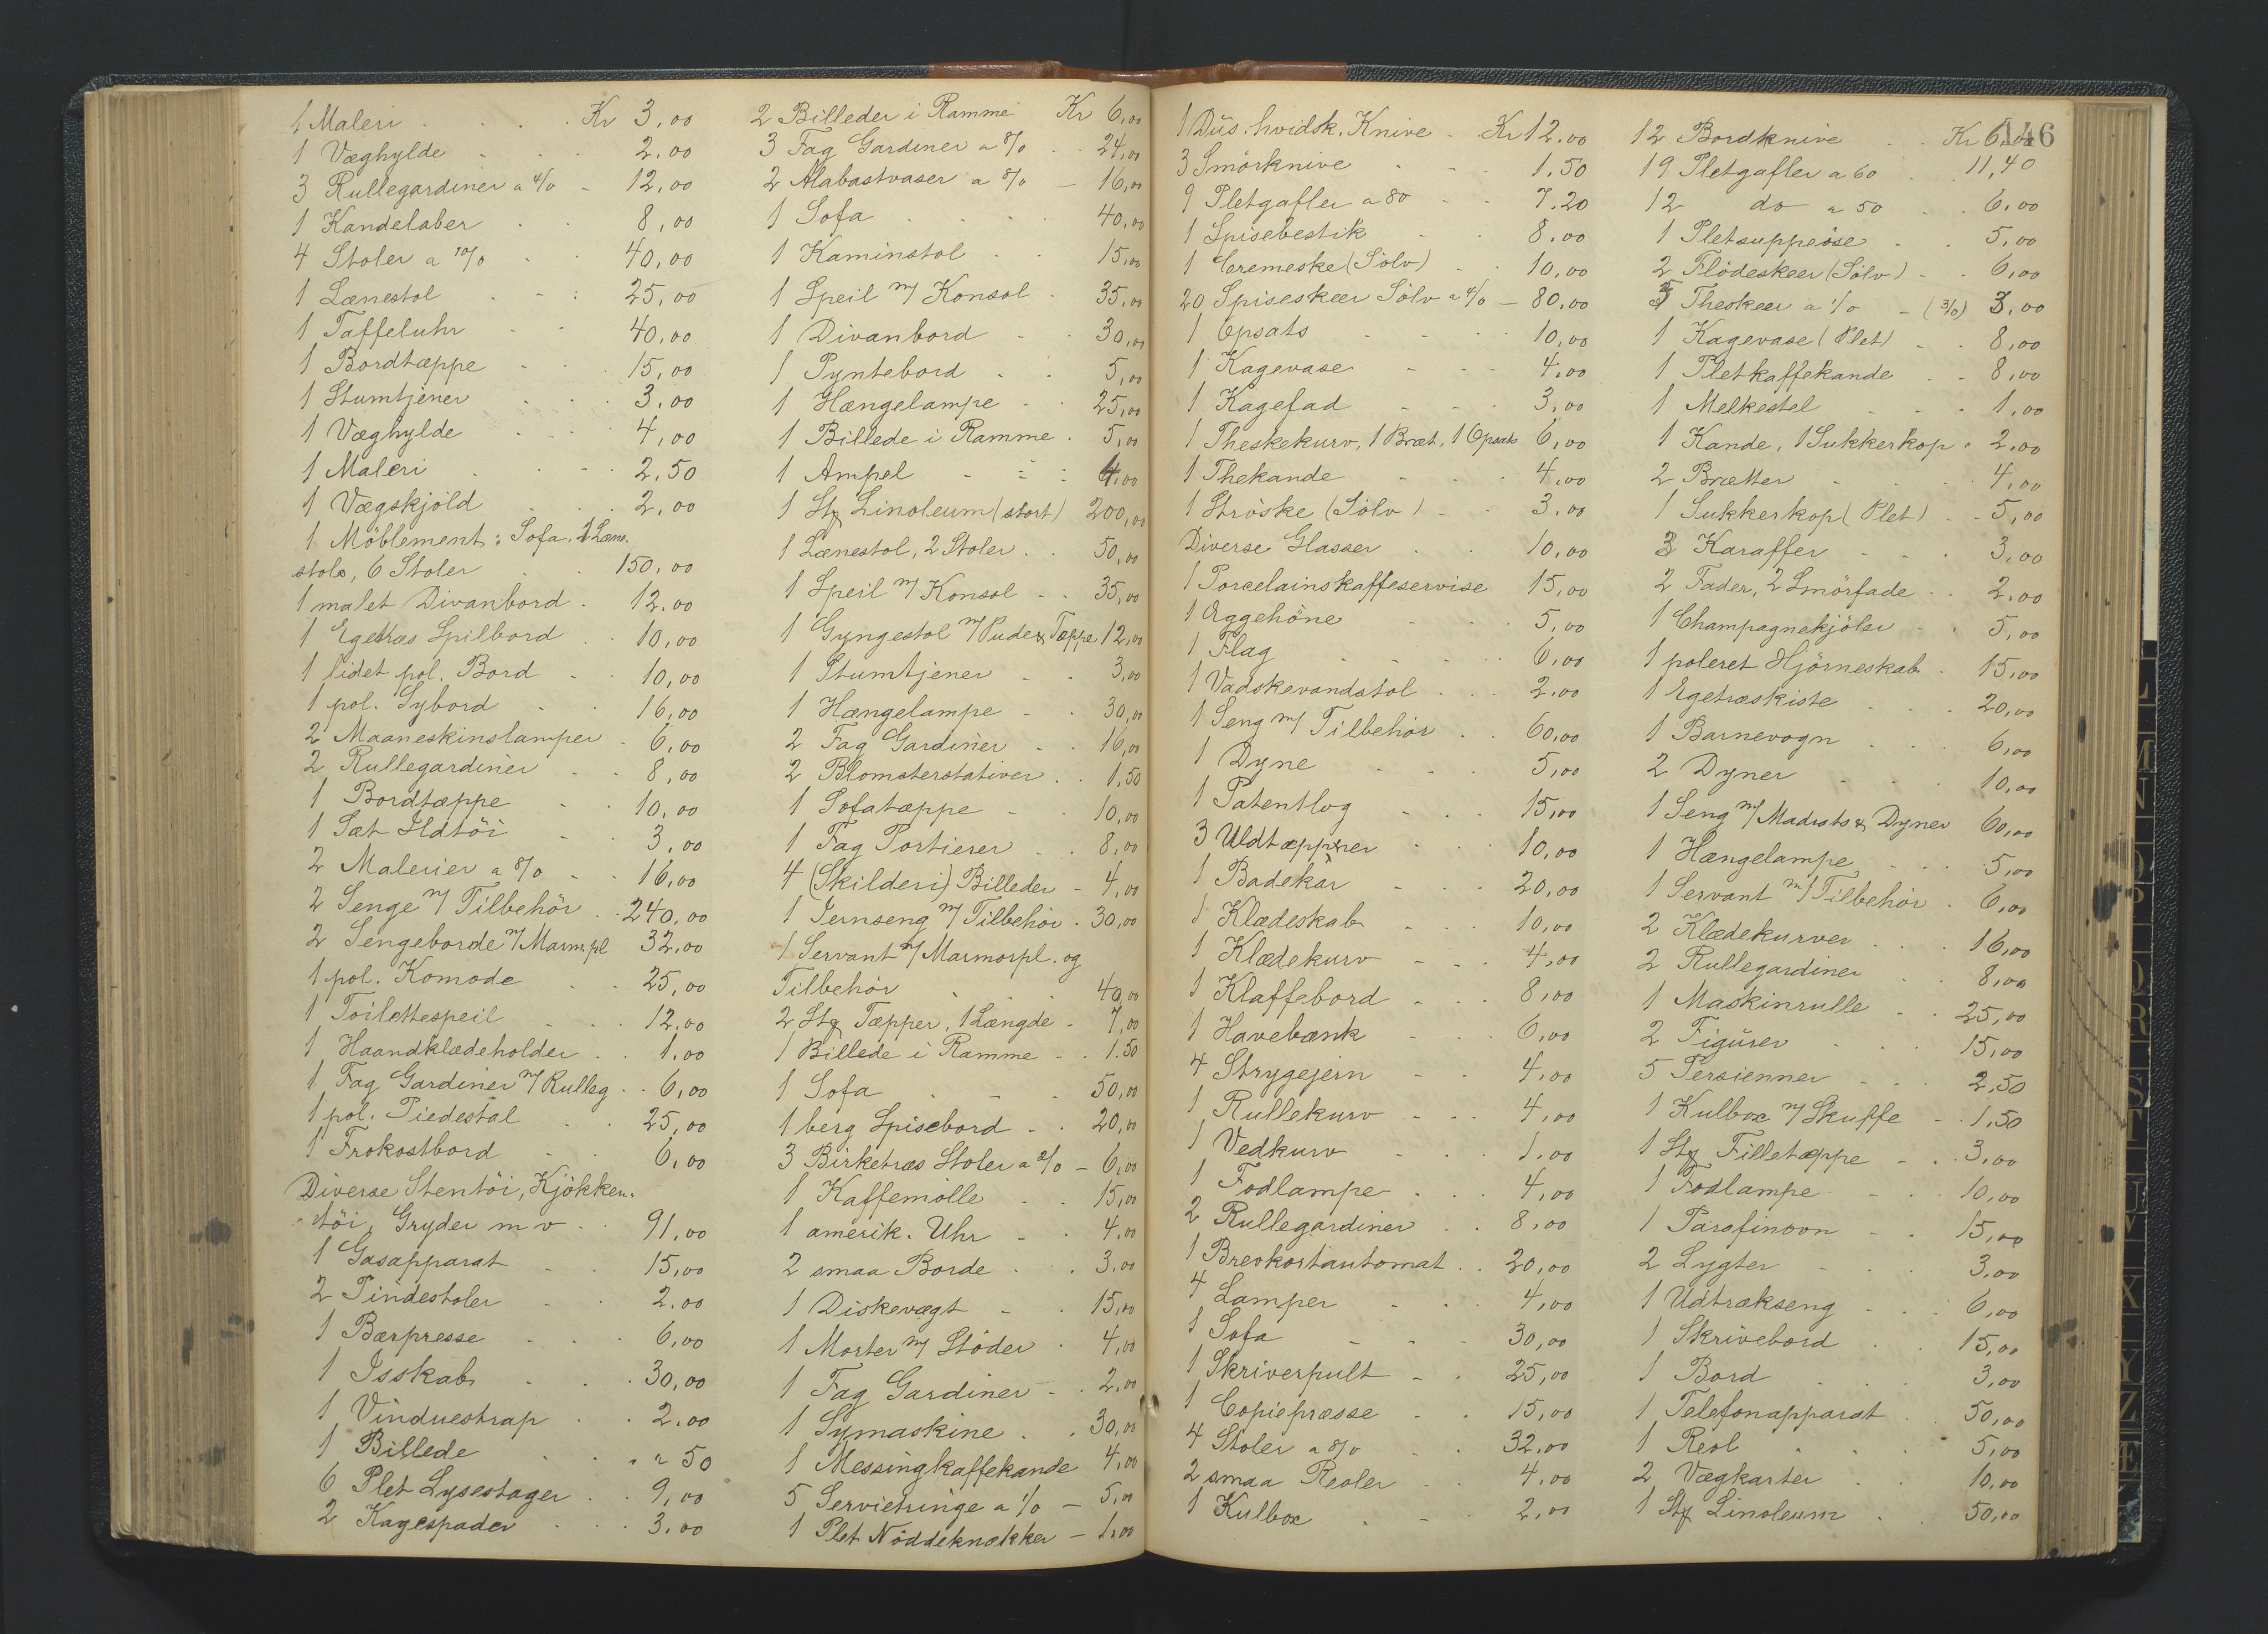 1 Maleri . . . . Kr 3,00
1 Væghylde - . . 2,00
3 Rullegardiner a 4/0 - 12,00
1 Kandelaber . . 8,00
4 Stoler a 10/0 . . 40,00
1 Lænestol . - : 25,00
1 Taffeluhr . . 40,00
1 Bordtæppe - . 15,00
1 Stumtjener . . . 3,00
1 Væghylde . . . 4,00
1 Maleri . . . . 2,50
1 Vægskjold . . 2,00
1 Möblement: Sofa, 2 Læne-
stole, 6 Stoler . . 150,00
1 malet Divanbord . 12,00
1 Egetræs Spilbord . . 10,00
1 lidet pol. Bord - . 10,00
1 pol. Sybord - . 16,00
2 Maaneskinslamper - 6,00
2 Rullegardiner . . 8,00
1 Bordtæppe . . 10,00
1 Sæt Ildtöi - . 3,00
2 Malerier a 8/0 - . 16,00
2 Senge m/ Tilbehör . . 240,00
2 Sengeborde m/ Marm.pl 32,00
1 pol. Komode . . 25,00
1 Toilettespeil . . . 12,00
1 Haandklædeholder . . 1,00
1 Fag Gardiner m/ Rulleg . . 6,00
1 pol. Piedestal . . 25,00
1 Frokostbord - . 6,00
Diverse Stentöi, Kjökken-
töi, Gryder m v . . 91,00
1 Gasapparat - . 15,00
2 Pindestoler - . 2,00
1 Bærpresse - . . 6,00
1 Isskab . . . 30,00
1 Vinduestrap . . 2,00
1 Billede . . " " 50
6 Plet Lysestager . . 9,00
2 Kagespader . . . 3,00
2 Billeder i Ramme Kr 6,00
3 Fag Gardiner a 8/0 . . 24,00
2 Alabastvaser a 8/0 - 16,00
1 Sofa . . . . 40,00
1 Kaminstol . . 15,00
1 Speil m/ Konsol . 35,00
1 Divanbord - . 30,00
1 Pyntebord . . 5,00
1 Hængelampe . . 25,00
1 Billede i Ramme . 5,00
1 Ampel - : : 4,00
1 Stk Linoleum (stort) 200,00
1 Lænestol, 2 Stoler . . 50,00
1 Speil m/ Konsol . . 35,00
1 Gyngestol m/ Pude & Tæppe 12,00
1 Stumtjener - . 3,00
1 Hængelampe - . 30,00
2 Fag Gardiner . . 16,00
2 Blomsterstativer . . 1,50
1 Sofatæppe - . 10,00
1 Fag Portierer . . 8,00
4 (Skilderi) Billeder - 4,00
1 Jernseng m/ Tilbehör . 30,00
1 Servant m/ Marmorpl. og
Tilbehör . . . 40,00
2 Stk Tæpper, 1 Længde . 7,00
1 Billede i Ramme - . 1,50
1 Sofa . - - 50,00
1 berg Spisebord - . 20,00
3 Birketræs Stoler a 2/0 - 6,00
1 Kaffemölle . . 15,00
1 amerik. Uhr - . 4,00
2 smaa Borde . . 3,00
1 Diskevægt - . 15,00
1 Morter m/ Stöder . 4,00
1 Fag Gardiner - . 2,00
1 Symaskine . . 30,00
1 Messingkaffekande 4,00
5 Servietringe a 1/0 - 5,00
1 Plet Nöddeknækker - 1,00
146
1 Düs. hvidsk. Knive . . Kr 12,00
3 Smörknive - . . 1,50
9 Pletgafler a 80 - . 7,20
1 Spisebestik . . 8,00
1 Cremeske (Sölv) . . 10,00
20 Spiseskeer Sölv a 4/0 - 80,00
1 Opsats - - . 10,00
1 Kagevase - - . 4,00
1 Kagefad - - . 3,00
1 Theskekurv, 1 Bræt, 1 Opsats 6,00
1 Thekande - - . 4,00
1 Ströske (Sölv) - . 3,00
Diverse Glasser . . 10,00
1 Porcelainskaffeservise 15,00
1 Æggehöne - . . 5,00
1 Flag - - - . . 6,00
1 Vadskevandstol . . . 2,00
1 Seng m/ Tilbehör . . 60,00
1 Dyne - - . 5,00
1 Patentlog - . . 15,00
3 Uldtæpper . . . 10,00
1 Badekar - - . 20,00
1 Klædeskab - - . 10,00
1 Klædekurv - - . 4,00
1 Klaffebord . - . 8,00
1 Havebænk - . . 6,00
4 Strygejern - . 4,00
1 Rullekurv - - . 4,00
1 Vedkurv - - . 1,00
1 Fodlampe . . . 4,00
2 Rullegardiner . . 8,00
1 Brevkortautomat . . 20,00
4 Lamper - - . 4,00
1 Sofa - - . 30,00
1 Skriverpult - . 25,00
1 Copiepræsse . . 15,00
4 Stoler a 8/0 . . 32,00
2 smaa Reoler . . 4,00
1 Kulbox . - . 2,00
12 Bordknive . . Kr 6,00
19 Pletgafler a 60 . . 11,40
12 do a 50 . . 6,00
1 Pletsuppeöse . . 5,00
2 Flödeskeer (Sölv) - . 6,00
3 Theskeer a 1/0 - (3/0) 3,00
1 Kagevase (Plet) - . 8,00
1 Pletkaffekande - . 8,00
1 Melkestel - . . 1,00
1 Kande, 1 Sukkerkop . 2,00
2 Brætter - . . 4,00
1 Sukkerkop (Plet) . . 5,00
3 Karaffer - - . 3,00
2 Fader, 2 Smörfade . . 2,00
1 Champagnekjöler - . 5,00
1 poleret Hjörneskab . 15,00
1 Egetræskiste . . . 20,00
1 Barnevogn . . . 6,00
2 Dyner - . . 10,00
1 Seng m/ Madrats & Dyner 60,00
1 Hængelampe - . . 5,00
1 Servant m/ Tilbehör . 6,00
2 Klædekurver . . . 16,00
2 Rullegardiner . . 8,00
1 Maskinrulle . . 25,00
2 Figürer - . . 15,00
5 Persienner - . . 2,50
1 Kulbox m/ Skuffe - . 1,50
1 Stk Filletæppe - . 3,00
1 Fodlampe - . . 10,00
1 Parafinovn - . 15,00
2 Lygter - - . 3,00
1 Udtrækseng - . . 6,00
1 Skrivebord . . 15,00
1 Bord . . . 3,00
1 Telefonapparat . 50,00
1 Reol . . . 5,00
2 Vægkarter . . 10,00
1 Stk Linoleum . . 50,00